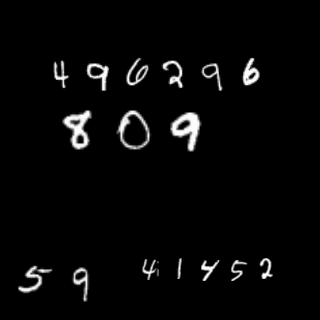 496296
809
59
41452